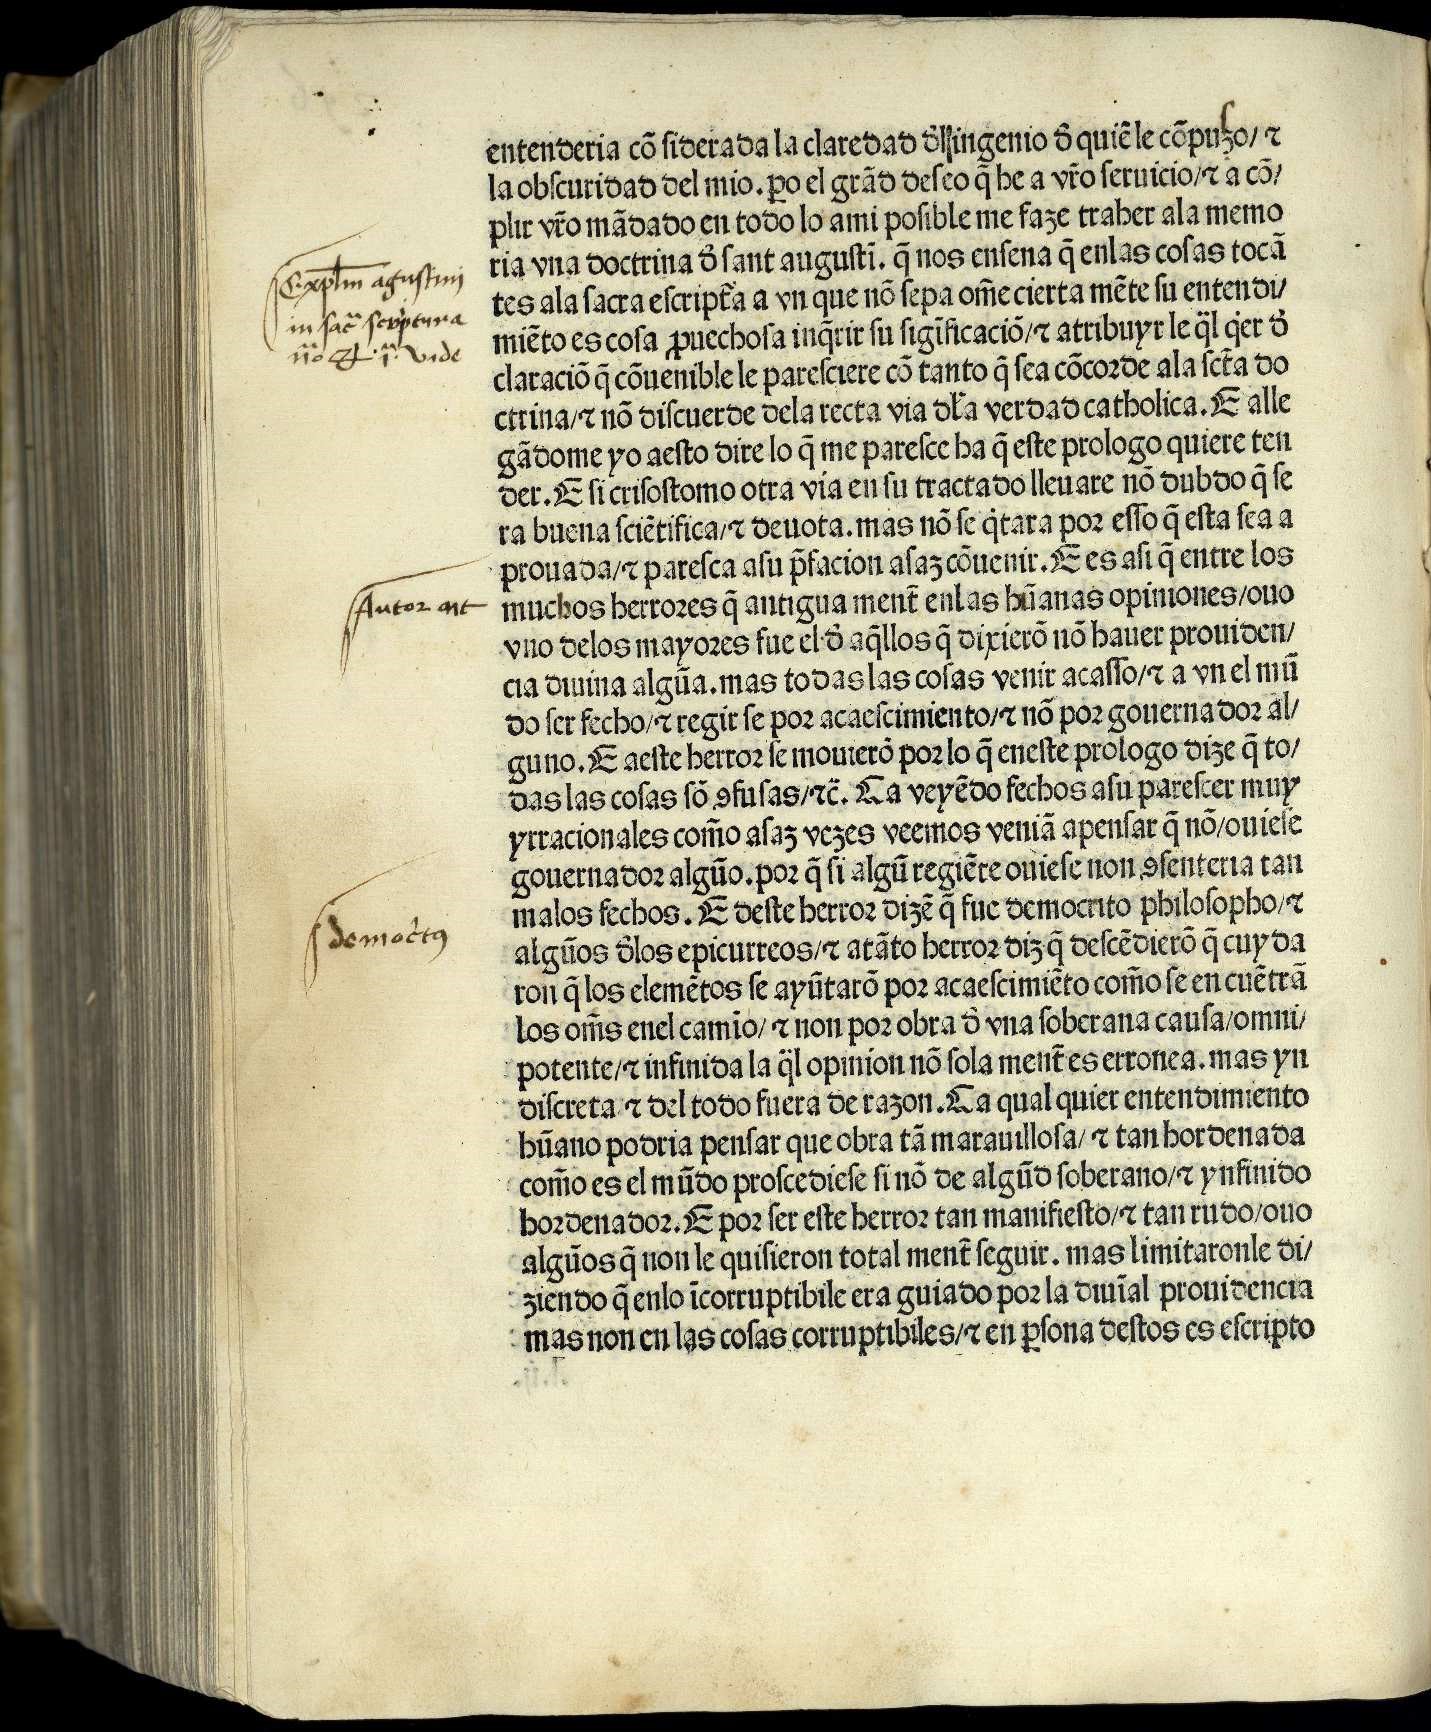 entenderia cõ siderada la claredad d̃l ingenio d̃ quiẽ le cõpuzo/ ⁊
la obscuridad del mio. ꝑo el grãd deseo q̃ he a vr̃o seruicio/ ⁊ a cõ/
plir vr̃o mãdado en todo lo ami posible me faze traher ala memo
ria vna doctrina d̃ sant augustĩ. q̃ nos ensena q̃ enlas cosas tocã
tes ala sacra escript̃a a vn que nõ sepa om̃e cierta mẽte su entendi/
miẽto es cosa ꝓuechosa inq̃rir su sigĩficaciõ/ ⁊ atribuyr le q̃l q̃er d̃
claraciõ q̃ cõuenible le paresciere cõ tanto q̃ sea cõcorde ala sct̃a do
ctrina/ ⁊ nõ discuerde dela recta via dl̃a verdad catholica. E alle
gãdome yo aesto dire lo q̃ me paresce ha q̃ este prologo quiere ten
der. E si crisostomo otra via en su tractado lleuare nõ dubdo q̃ se
ra buena sciẽtifica/ ⁊ deuota. mas nõ se q̃tara por esso q̃ esta sea a
prouada/ ⁊ paresca asu p̃facion asaz cõuenir. E es asi q̃ entre los
muchos herrores q̃ antigua ment̃ enlas hũanas opiniones/ ouo
vno delos mayores fue el d̃ aq̃llos q̃ dixierõ nõ hauer prouiden/
cia diuina algũa. mas todas las cosas venir acasso/ ⁊ a vn el mũ
do ser fecho/ ⁊ regir se por acaescimiento/ ⁊ nõ por gouernador al/
guno. E aeste herror se mouierõ por lo q̃ eneste prologo dize q̃ to/
das las cosas sõ ꝯfusas/ ⁊c̃. Ca veyẽdo fechos asu parescer muy
yrracionales com̃o asaz vezes veemos veniã apensar q̃ nõ/ ouiese
gouernador algũo. por q̃ si algũ regiẽte ouiese non ꝯsenteria tan
malos fechos. E deste herror dizẽ q̃ fue democrito philosopho/ ⁊
algũos d̃los epicurreos/ ⁊ atãto herror diz q̃ descẽdierõ q̃ cuyda
ron q̃ los elemẽtos se ayũtarõ por acaescimiẽto com̃o se en cuẽtrã
los om̃s enel camĩo/ ⁊ non por obra d̃ vna soberana causa/ omni/
potente/ ⁊ infinida la q̃l opinion nõ sola ment̃ es erronea. mas yn
discreta ⁊ del todo fuera de razon. Ca qual quier entendimiento
hũano podria pensar que obra tã marauillosa/ ⁊ tan hordenada
com̃o es el mũdo proscediese si nõ de algũd soberano/ ⁊ ynfinido
hordenador. E por ser este herror tan manifiesto/ ⁊ tan rudo/ ouo
algũos q̃ non le quisieron total ment̃ seguir. mas limitaronle di/
ziendo q̃ enlo ĩcorruptibile era guiado por la diuĩal prouidencia
mas non en las cosas corruptibiles/ ⁊ en ꝑsona destos es escripto
agustini
in sac̃ scriptura
vide
Autor
democ̃tꝰ